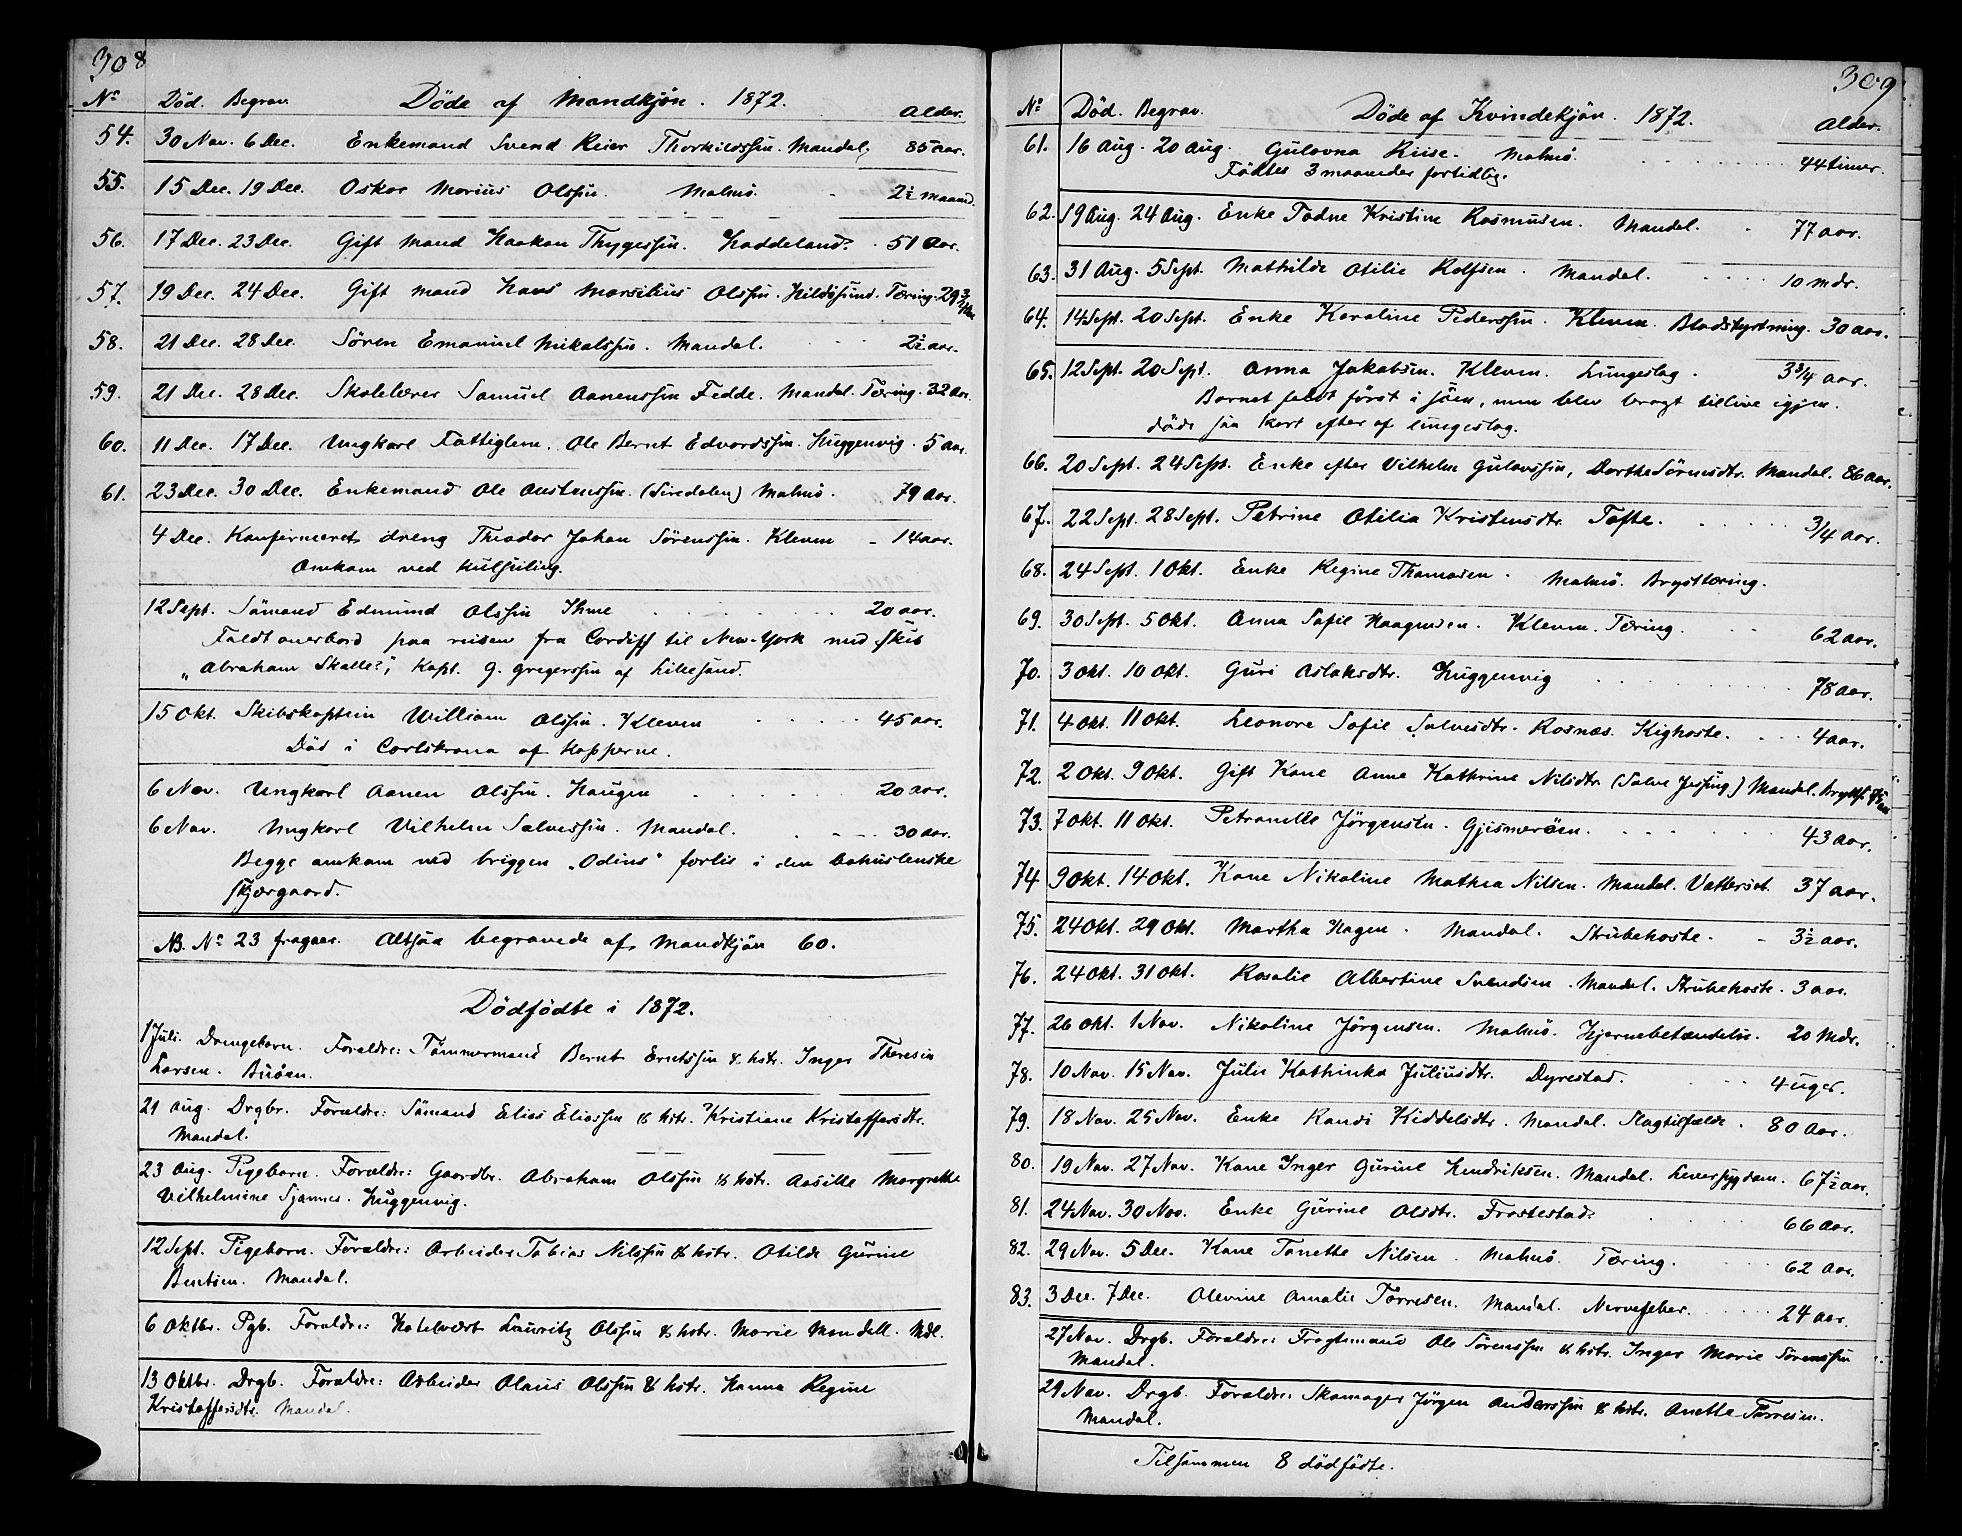 308
No Död. Begrav. Döde af Mandkjön. 1872. Alder.
54. 30 Nov. 6 Dec. Enkemand Svend Reier Thorkildssøn. Mandal. 85 aar.
55. 15 Dec. 19 Dec. Oskar Marius Olssøn. Malmö. 2½ maaned.
56. 17 Dec. 23 Dec. Gift mand Haakon Thygessøn. Haddeland. 51 aar.
57. 19 Dec. 24 Dec. Gift mand Hans Marselius Olssøn. Hildösund. Tæring. 29¾ aar
58. 21 Dec. 28 Dec. Sören Emanuel Mikalssøn. Mandal. 2½ aar.
59. 21 Dec. 28 Dec. Skolelærer Samuel Aanenssøn Fedde. Mandal. Tæring. 32 aar.
60. 11 Dec. 17 Dec. Ungkarl Fattiglem. Ole Bernt Edvardssøn. Huggenvig. 5 aar.
61. 23 Dec. 30 Dec. Enkemand Ole Austenssøn. (Siredalen) Malmö. 79 aar.
4 Dec. Konfirmeret dreng Theodor Johan Sörenssøn. Kleven 14 aar.
Omkom ved kulseiling.
12 Sept. Sömand Edmund Olssøn Ihme 20 aar.
Faldt overbord paa reisen fra Cardiff til New-York med skib
"Abraham Skalle?", Kapt. G. Gregerssøn af Lillesand.
15 Okt. Skibskaptein William Olssøn. Kleven 45 aar.
Död i Carlskrona af Kopperne.
6 Nov. Ungkarl Aanen Olssøn. Haugen 20 aar.
6 Nov. Ungkarl Vilhelm Salvessøn. Mandal. 30 aar.
Begge omkom ved briggen "Odins" forlis i den bohuslenske
skjærgaard.
NB. No 23 fragaar. Altsaa begravede af Mandkjön 60.
Dödfödte i 1872.
1 Juli. Drengebarn. Foreldre: Tömmermand Bernt Erntssøn & hstr. Inger Theresie
Larsen. Buöen.
21 Aug. Drgbr. Forældre: Sömand Elias Eliassøn & hstr. Kristiane Kristoffersdtr.
Mandal.
23 Aug. Pigebarn. Forældre: Gaardbr. Abraham Olssøn & hstr. Aasille Margrethe
Vilhelmine Huggenvig.
12 Sept. Pigebarn. Forældre: Arbeider Tobias Nilssøn & hstr. Otilde Gurine
Bentsen. Mandal.
6 Oktbr. Pgb. Forældre: Hotelvært Lauritz Olssøn & hstr. Marie Mandell. Mdl.
13 Oktbr. Drgb. Forældre: Arbeider Olaus Olssøn & hstr. Hanna Regine
Kristoffersdtr. Mandal.
309
No Död. Begrav. Döde af Kvindekjön. 1872. Alder.
61. 16 Aug. 20 Aug. Gulovna Riise. Malmö. 44 timer.
Födtes 3 maaneder fortidlig.
62. 19 Aug. 24 Aug. Enke Todne Kristine Rasmusen. Mandal. 77 aar.
63. 31 Aug. 5 Sept. Mathilde Otilie Rolfsen. Mandal. 10 mdr.
64. 14 Sept. 20 Sept. Enke Karoline Pederssøn. Kleven. Blodstyrtning. 30 aar.
65. 12 Sept. 20 Sept. Anna Jakobsen. Kleven. Lungeslag. 3¾ aar.
Barnet faldt först i söen, men blev bragt tillive igjen.
döde saa kort efter af lungeslag.
66. 20 Sept. 24 Sept. Enke efter Vilhelm Gulovssøn, Dorthe Sörensdtr. Mandal. 86 aar.
67. 22 Sept. 28 Sept. Petrine Otilia Kristensdtr. Tofte. 3/4 aar.
68. 24 Sept. 1 Okt. Enke Regine Thomasen. Malmö. Brysttæring.
69. 30 Sept. 5 Okt. Anna Sofie Haagensen. Kleven. Tæring. 62 aar.
70. 3 Okt. 10 Okt. Guri Aslaksdtr. Huggenvig 78 aar.
71. 4 Okt. 11 Okt. Leonore Sofie Salvesdtr. Rosnæs. Kighoste. 4 aar.
72. 2 Okt. 9 Okt. Gift Kone Anne Kathrine Nilsdtr (Salve Jessing) Mandal.
73. 7 Okt. 11 Okt. Petronelle Jörgensen. Gjismeröen. 43 aar.
74 9 Okt. 14 Okt. Kone Nikoline Mathea Nilsen. Mandal. Vattersot. 37 aar.
75. 24 Okt. 29 Okt. Martha Hagen. Mandal. Strubehoste. 3½ aar.
76. 24 Okt. 31 Okt. Rosalie Albertine Svendsen. Mandal. Strubehoste. 3 aar.
77. 26 Okt. 1 Nov. Nikoline Jörgensen. Malmö. Hjernebetændelse. 20 Mdr.
78. 10 Nov. 15 Nov. Julie Kathinka Juliusdtr. Dyrestad. 4 uger.
79. 18 Nov. 25 Nov. Enke Randi Kiddelsdtr. Mandal. Slagtilfælde. 80 aar.
80. 19 Nov. 27 Nov. Kone Inger Gurine Hendriksen. Mandal. Leversygdom. 67½ aar.
81. 24 Nov. 30 Nov. Enke Gurine Olsdtr. Frostestad. 66 aar.
82. 29 Nov. 5 Dec. Kone Tonette Nilsen. Malmö. Tæring. 62 aar.
83. 3 Dec. 7 Dec. Olevine Amalie Tørresen. Mandal. Nervefeber. 24 aar.
27 Nov. Drgb. Forældre: Fragtemand Ole Sörenssøn & hstr. Inger Marie Sörenssøn
Mandal.
29 Nov. Drgb. Forældre: Skomager Jörgen Anderssøn & hstr. Anette Tørresen.
Mandal.
Tilsammen 8 dödfödte.